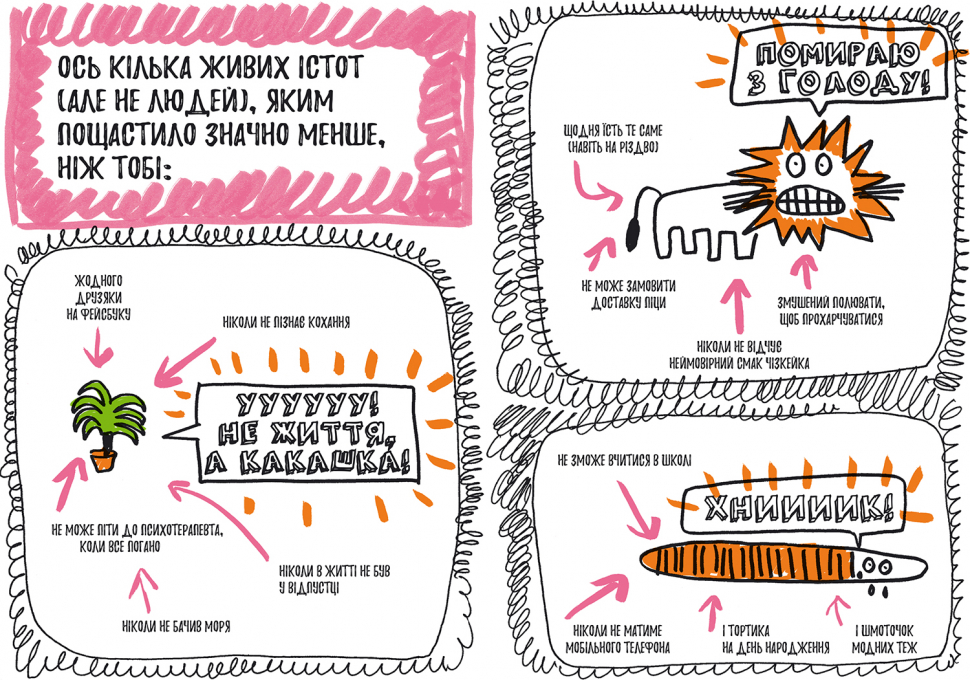 ОСЬ КІЛЬКА ЖИВИХ ІСТОТ
(АЛЕ НЕ ЛЮДЕЙ), ЯКИМ
ПОЩАСТИЛО ЗНАЧНО МЕНШЕ,
НІЖ ТОБІ:
ЖОДНОГО
ДРУЗЯКИ
НА ФЕЙСБУКУ
НІКОЛИ НЕ ПІЗНАЄ КОХАННЯ
УУУУУУ!
НЕ ЖИТТЯ,
А КАКАШКА!
НЕ МОЖЕ ПІТИ ДО ПСИХОТЕРАПЕВТА,
КОЛИ ВСЕ ПОГАНО
НІКОЛИ В ЖИТТІ НЕ БУВ
У ВІДПУСТЦІ
НІКОЛИ НЕ БАЧИВ МОРЯ
ПОМИРАЮ
З ГОЛОДУ!
ЩОДНЯ ЇСТЬ ТЕ САМЕ
(НАВІТЬ НА РІЗДВО)
НЕ МОЖЕ ЗАМОВИТИ
ДОСТАВКУ ПІЦИ
ЗМУШЕНИЙ ПОЛЮВАТИ,
ЩОБ ПРОХАРЧУВАТИСЯ
НІКОЛИ НЕ ВІДЧУЄ
НЕЙМОВІРНИЙ СМАК ЧІЗКЕЙКА
НЕ ЗМОЖЕ ВЧИТИСЯ В ШКОЛІ
ХНИИИИК!
НІКОЛИ НЕ МАТИМЕ
МОБІЛЬНОГО ТЕЛЕФОНА
І ТОРТИКА
НА ДЕНЬ НАРОДЖЕННЯ
І ШМОТОЧОК
МОДНИХ ТЕЖ